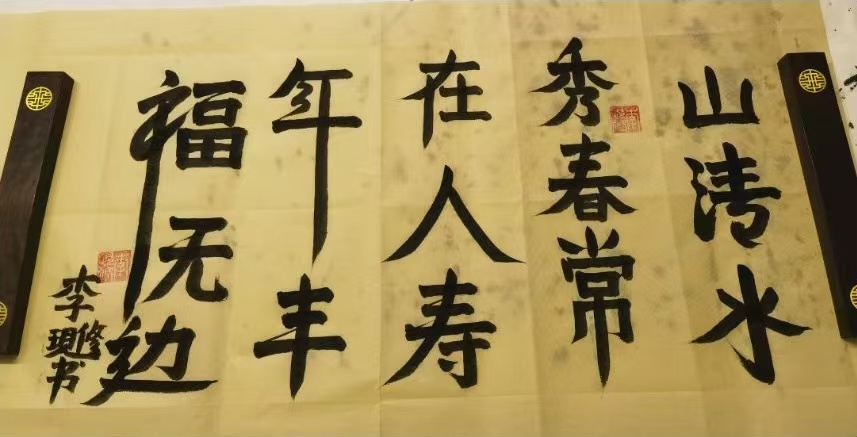 山清水
秀春常
在人寿
年丰
福无边
李修现书